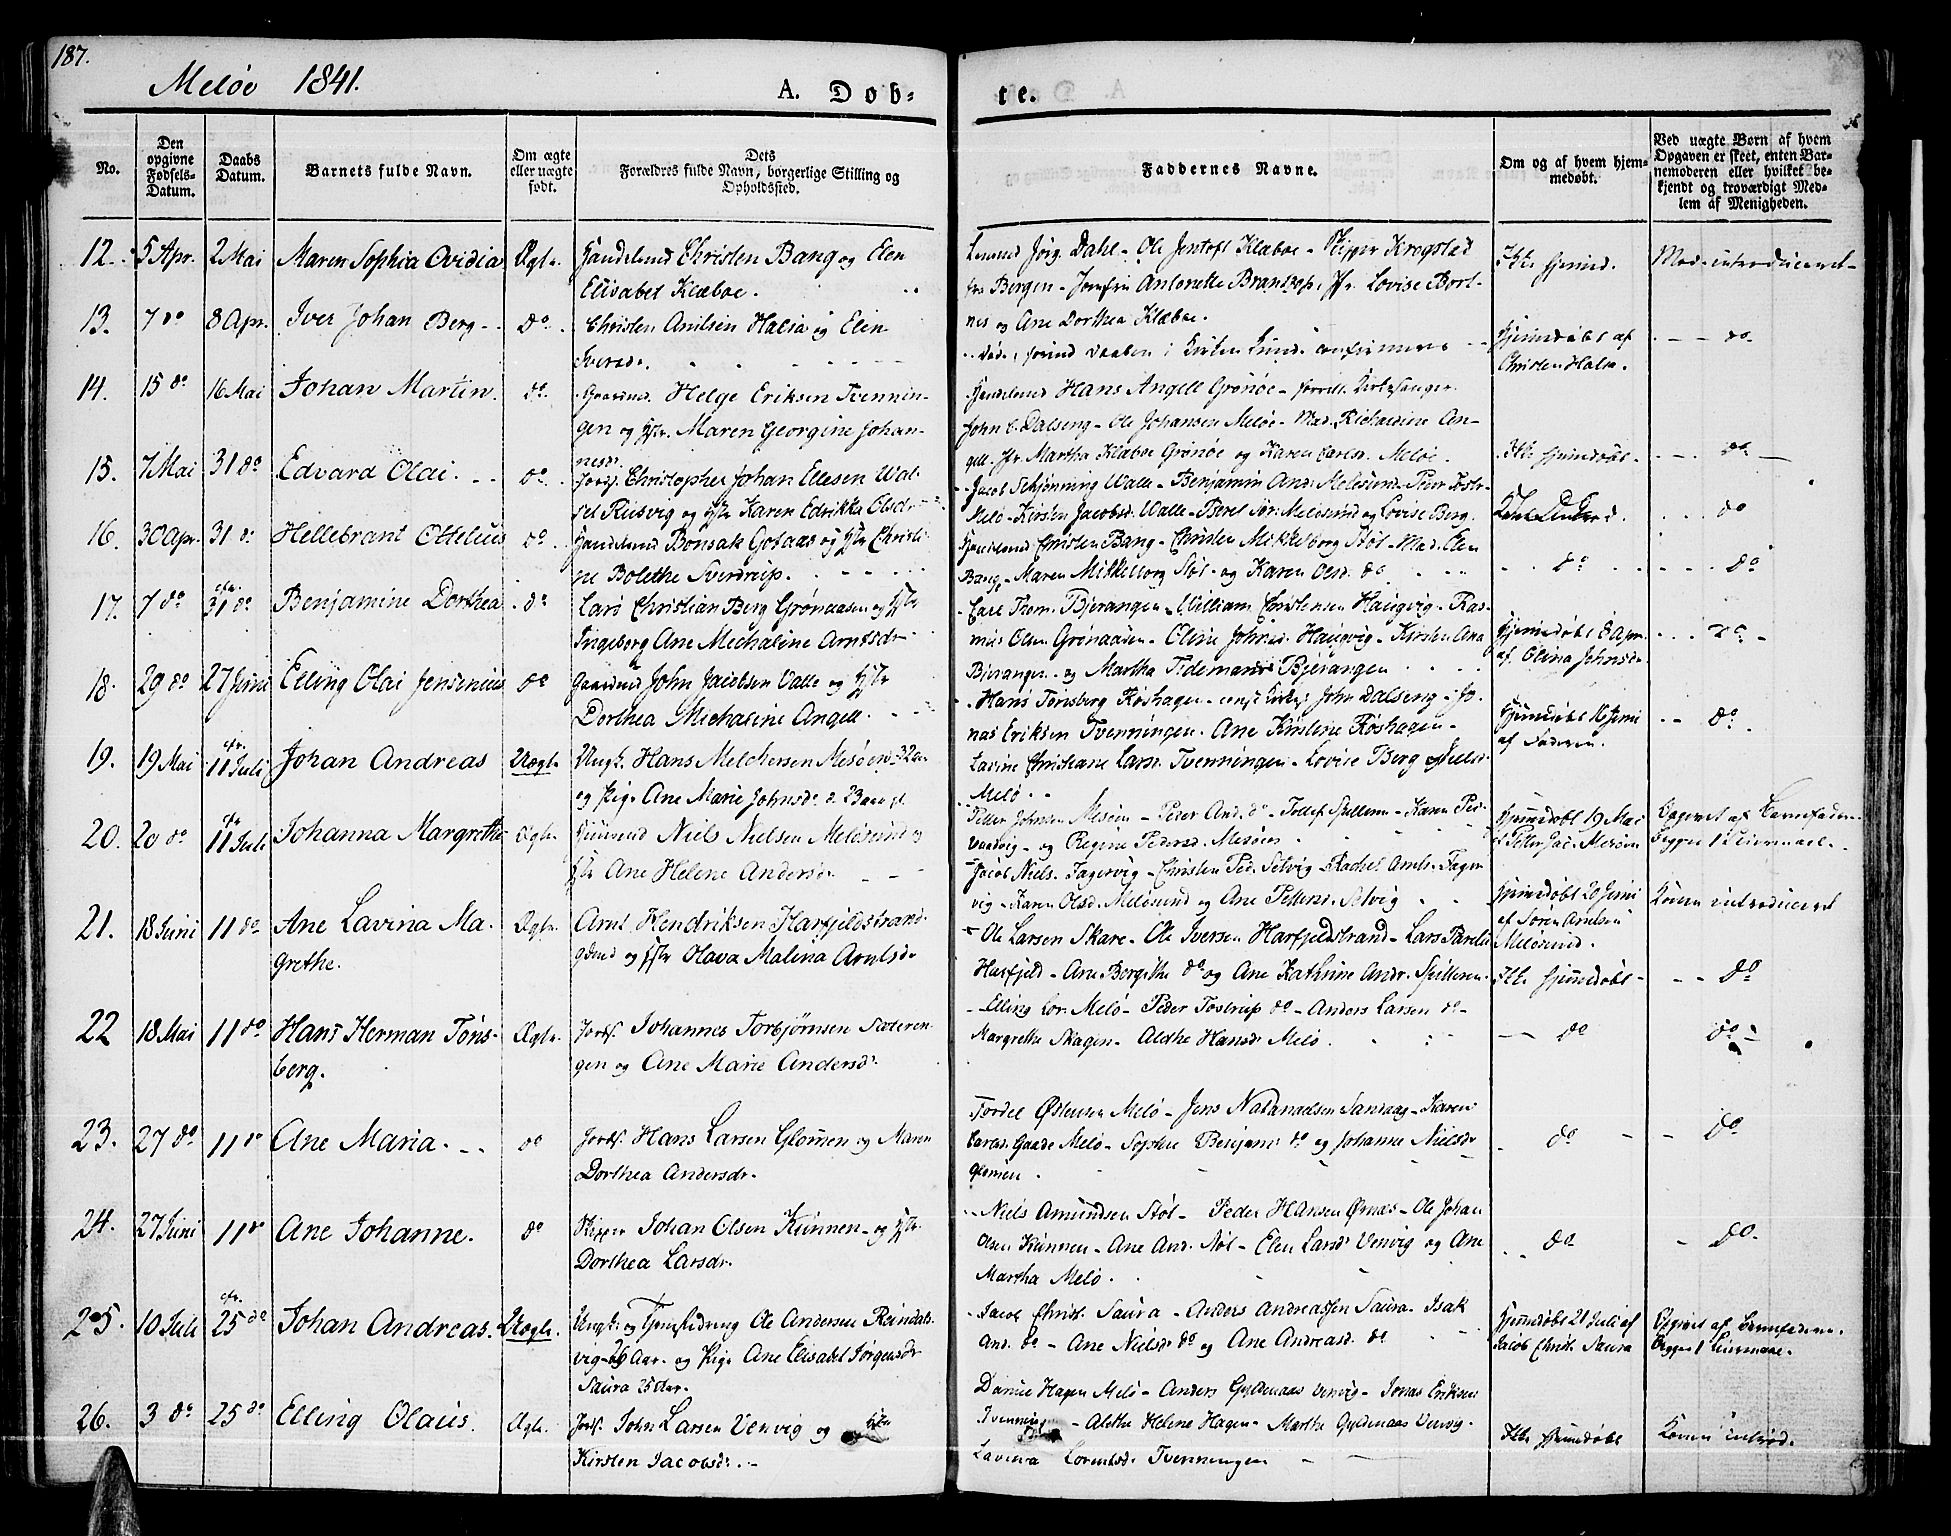 187.
Meløe 1841.
A. Døb-
te.
No.
Den opgivne Fødsels-Datum.
Daabs Datum.
Barnets fulde Navn.
Om ægte eller uægte født.
Dets Forældres fulde Navn, borgerlige Stilling og Opholdssted.
Faddernes Navne.
Om og af hvem hjemmedøbt.
Ved uægte Børn af hvem Opgaven er skeet, enten Barnemoderen eller hvilket bekjendt og troværdigt Medlem af Menigheden.
12. 5 Apr. 2 Mai Maren Sophia Ovidia Ægte. Handelsmd Christen Bang og Elen
Elisabet Klæboe.
Jörg. Dahl - Ole Jentoft Klæboe - Skipper Krogstad
fra Bergen - Jomfru Antonette Brandt, Jfr. Lovise Bort-
nes og Ane Dorthea Klæboe.
Ikke hjemmd.
Mod. introduceret
13. 7 do 8 Apr. Iver Johan Berg - do. Christen Antilsen Halsa og Elen
Christen Halsa.
Hjemmdøbt af
do
14. 15 do 16 Mai Johan Martin. do. Gaardmd. Helge Eriksen Tvennin-
gen og Hstr. Maren Georgine Johan-
nesdr.
Handelsmd Hans Angell Grönöe - Kirkesanger
John C. Dalseng - Ole Johansen Meløe - Mad. Richardine An-
gell. Jfr. Martha Klæboe Grönöe og Karen Carlsd. Meløe.
Ik. hjemmdøbt - do
15. 7 Mai 31 do Edvard Olai. do. Jordsf. Christopher Johan Ellesen Val-
set Reisvig og Hstr Karen Edrikka Olsdr
Jacob Schjønning Walle - Benjamin And. Meløsund - Peder Tostr.
Melö - Kirsten Jacobsd. Walle - Beret Sör. Melösund og Lovise Berg.
do
16. 30 Apr. 31 do Hellebrant Ottelius do. Handelsmd Bonsak Gotaas og Hstr Christi-
ne Bolethe Sverdrup.
Handelsmd Christen Bang - Christen Mikkelborg Stöt - Mad. Elen
Bang - Maren Mikkelborg Stöt - og Karen Olsd. do
do do
17. 7 do 31 do Benjamine Dorthea. do Lars Christian Berg Grønaasen og Hstr
Ingeborg Ane Michaline Arntsdr
Carl Thom. Bjerangen - William Christensen Haugvig - Ras-
mus Olsen Grönaasen - Oline Johnsd. Haugvig - Kirsten Ana
Bjerangen - og Martha Tidemansd Bjerangen
Hjemmdøbt 8 Apr.
af Olina Johnsdr
do
18. 29 do 27 Juni Elling Olai Jensenius do Gaardmd John Jacobsen Valle og Hstr
Dorthea Michaline Angell.
Hans Tönsberg Röshagen - John Dalseng - Jo-
nas Eriksen Tvenningen. Ane Kirstine Röshagen -
Lavine Christiane Larsd. Tvenningen - Lovise Berg
Melö
Hjemmdøbt 16 Juni
af Faderen.
do
19. 19 Mai 11 Juli Johan Andreas Uægte. Ungk. Hans Melchersen Mesöen 32 aar
og Pige Ane Marie Johnsdr. 23 aar gl.
Petter Johnsen Mesöen - Peder And. do - Tollef Spilleren - Karen Ped.
og Regine Pedersd. Mesöen
Hjemmdøbt 19 Mai
af Peter Jac. Mesöen
Opgivet af Barnefaderen
Begges 1 Leiermaal.
20. 20 do 11 Juli Johanna Margrethe Ægte. Huusmd Niels Nielsen Melösund og
Hstr Ane Helene Andersdr.
Jacob Niels. Fagervig - Christen Ped. Selvig - Rachel Arnts. Fager-
vig - Karen Olsd. Melösund og Ane Pettersd. Selvig
Hjemmdøbt 20 Juni
af Sören Arntsen
Melösund.
Konen introduceret
21. 18 Juni 11 do Ane Lavina Ma-
grethe.
Ægte. Arnt Hendriksen Harfjeldstrand
og Hstr Olava Malena Arntsdr
Ole Larsen Skare - Ole Iversen Harfjeldstrand - Lars Parelius
Harfjeld - Ane Bergithe do og Ane Kathrine Andr. Spilleren.
Ik. hjemmdøbt - do
22 18 Mai 11 do Hans Herman Tøns-
berg.
Ægte. Jordsf. Johannes Torbjørnsen Sæteren-
gen og Ane Marie Andersdr.
Elling Lor. Melö - Peder Tostrup do - Anders Larsen do -
Margrethe Skagen - Aldthe Hansdr Melö
do do
23. 27 do 11 do Ane Maria. do Jordsf. Hans Larsen Glomen og Maren
Dorthea Andersdr.
Tordel Østensen Melö - Jens Natanaelsen Sandaag - Karen
Larsd. Gaade Melö - Sophie Benjams. do og Johanne Nielsdr
Glomen.
do do
24. 27 Juni 11 do Ane Johanne. do Skipper Johan Olsen Kunnen - og Hstr
Dorthea Larsdr.
Niels Amundsen Stöt - Peder Hansen Ørnæs - Ole Johan
Olsen Kunnen - Ane And. Støt - Elen Larsdr Venvig og Ane
Martha Melö.
do do.
25. 10 Juli 25 do Johan Andreas. Uægte. Ungk. og Tjenestedreng Ole Andersen Reindals-
vig 26 Aar. og Pige Ane Elisabet Jørgensdr
Saura 25 Aar.
Jacob Christ. Saura - Anders Andreassen Saura - Isak
And. do - Ane Nielsdr do og Ane Andreasd. do
Hjemmdøbt 21 Juli af
Jacob Christ. Saura
Opgivet af Barnefaderen.
Begges 1 Leiermaal.
26. 3 do 25 do Elling Olaus. Ægte. Jordsf. John Larsen Venvig og Hstr
Kirsten Jacobsdr.
Daniel Hagen Melö - Anders Gyldenaas Venvig - Jonas Eriksen
Tvenning - Alethe Helene Hagen - Marthe Gyldenaas Venvig.
Lavina Lorentsdr Tvenningen
Ikke hjemmdøbt
Konen introd.